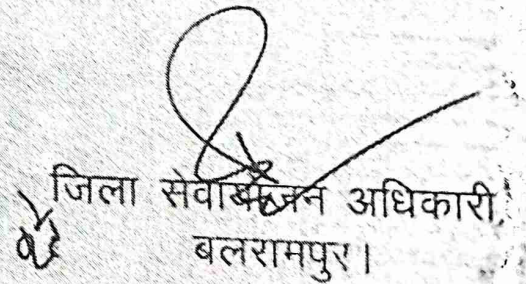 जिला सेवायोजन अधिकारी,
बलरामपुर।